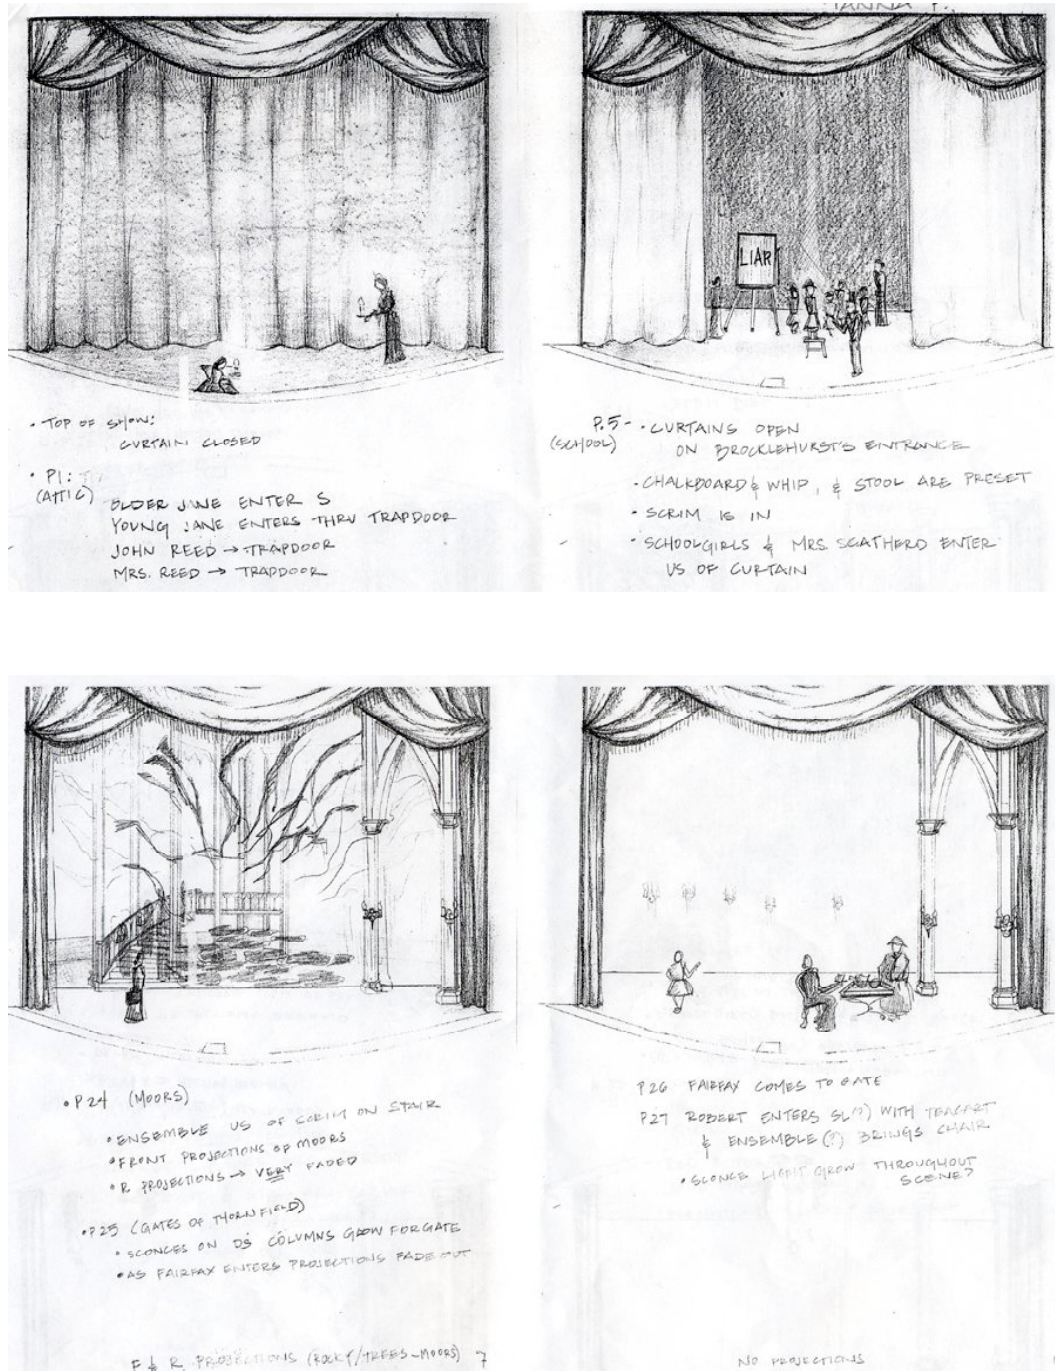 • TOP OF SHOW:
CURTAIN CLOSED
• P1:
(ATTIC)
OLDER JANE ENTER S
YOUNG JANE ENTERS THRU TRAPDOOR
JOHN REED → TRAPDOOR
MRS. REED → TRAPDOOR
LIAR
P.5 - • CURTAINS OPEN
(SCHOOL) ON BROCKLEHURST'S ENTRANCE
• CHALKBOARD & WHIP, & STOOL ARE PRESET
• SCRIM IS IN
• SCHOOLGIRLS & MRS. SCATHERD ENTER
US OF CURTAIN
• P24 (MOORS)
• ENSEMBLE US OF SCRIM ON STAIR
• FRONT PROJECTIONS OF MOORS
• R PROJECTIONS → VERY FADED
• P25 (GATES OF THORNFIELD)
• SCONCES ON DS COLUMNS GLOW FOR GATE
• AS FAIRFAX ENTERS PROJECTIONS FADE OUT
F & R PROJECTIONS (ROCKY/TREES-MOORS) 7
P26 FAIRFAX COMES TO GATE
P27 ROBERT ENTERS SL(?) WITH TEACART
& ENSEMBLE (?) BRINGS CHAIR
• SCONCE LIGHT GROW THROUGHOUT
SCENE?
NO PROJECTIONS